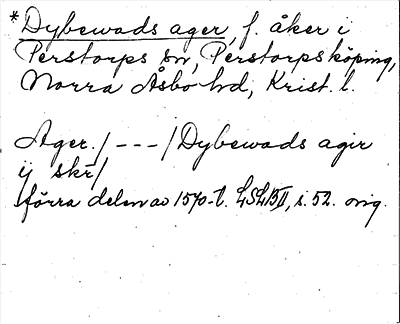 *Dybewads ager, f. åker i
Perstorps sn, Perstorps köping,
Norra Åsbo hd, Krist. l.
Ager./---/Dybewads agir
ij skr/
förra delen av 1570-t. LSLBII, s. 52. orig.